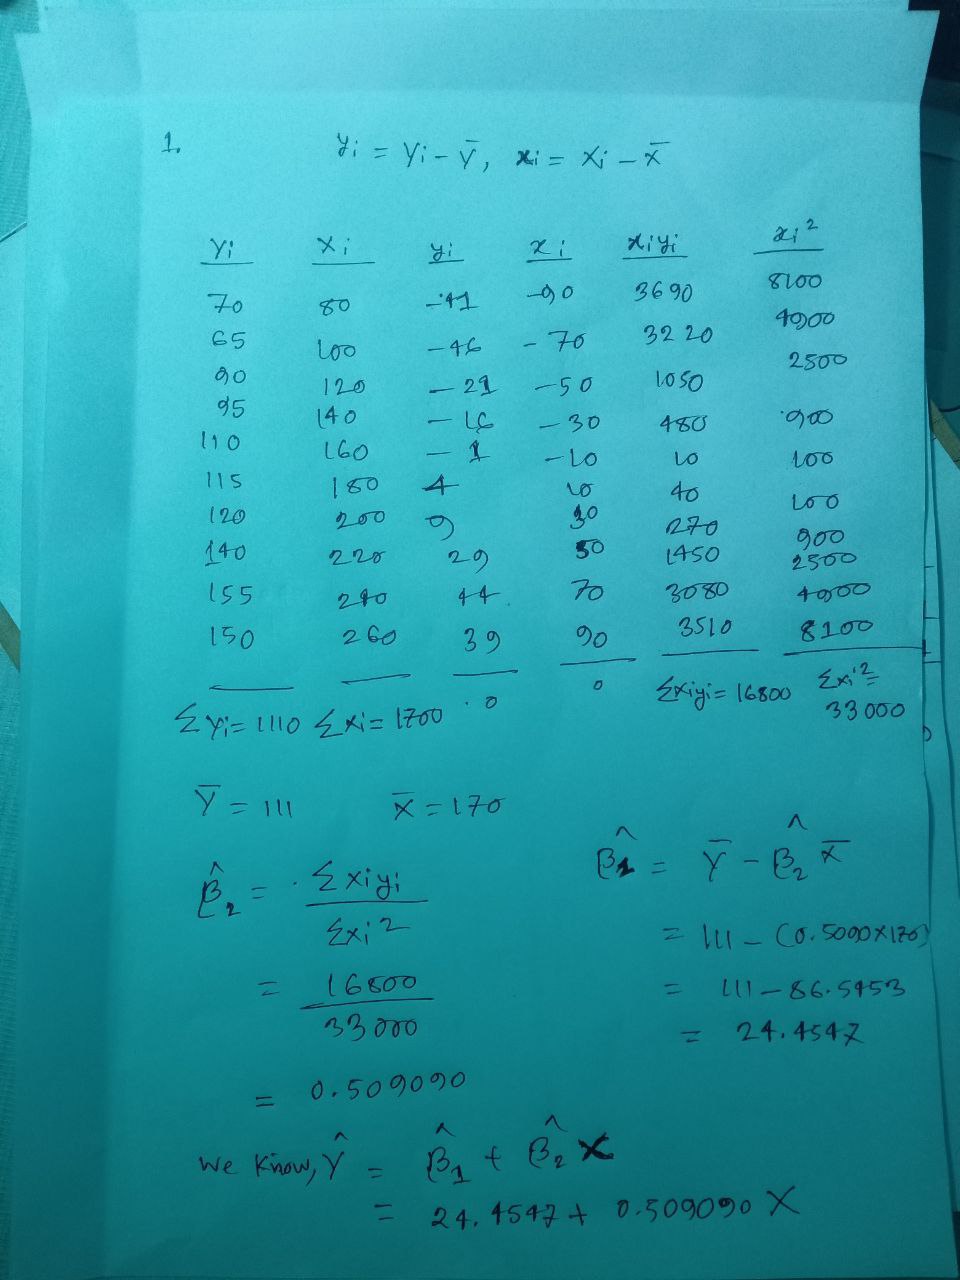 1. yi = Yi - Ȳ, xi = Xi - X̄
Yi Xi yi xi xiyi xi²
70 80 -41 -90 3690 8100
65 100 -46 -70 3220 4900
90 120 -21 -50 1050 2500
95 140 -16 -30 480 900
110 160 -1 -10 10 100
115 180 4 10 40 100
120 200 9 30 270 900
140 220 29 50 1450 2500
155 240 44 70 3080 4900
150 260 39 90 3510 8100
ΣYi = 1110 ΣXi = 1700 0 0 Σxiyi = 16800 Σxi² = 33000
Ȳ = 111 X̄ = 170
β̂2 = Σxiyi / Σxi²
= 16800 / 33000
= 0.509090
β̂1 = Ȳ - β̂2 X̄
= 111 - (0.5090×170)
= 111 - 86.5453
= 24.4547
We know, Ŷ = β̂1 + β̂2 X
= 24.4547 + 0.509090 X